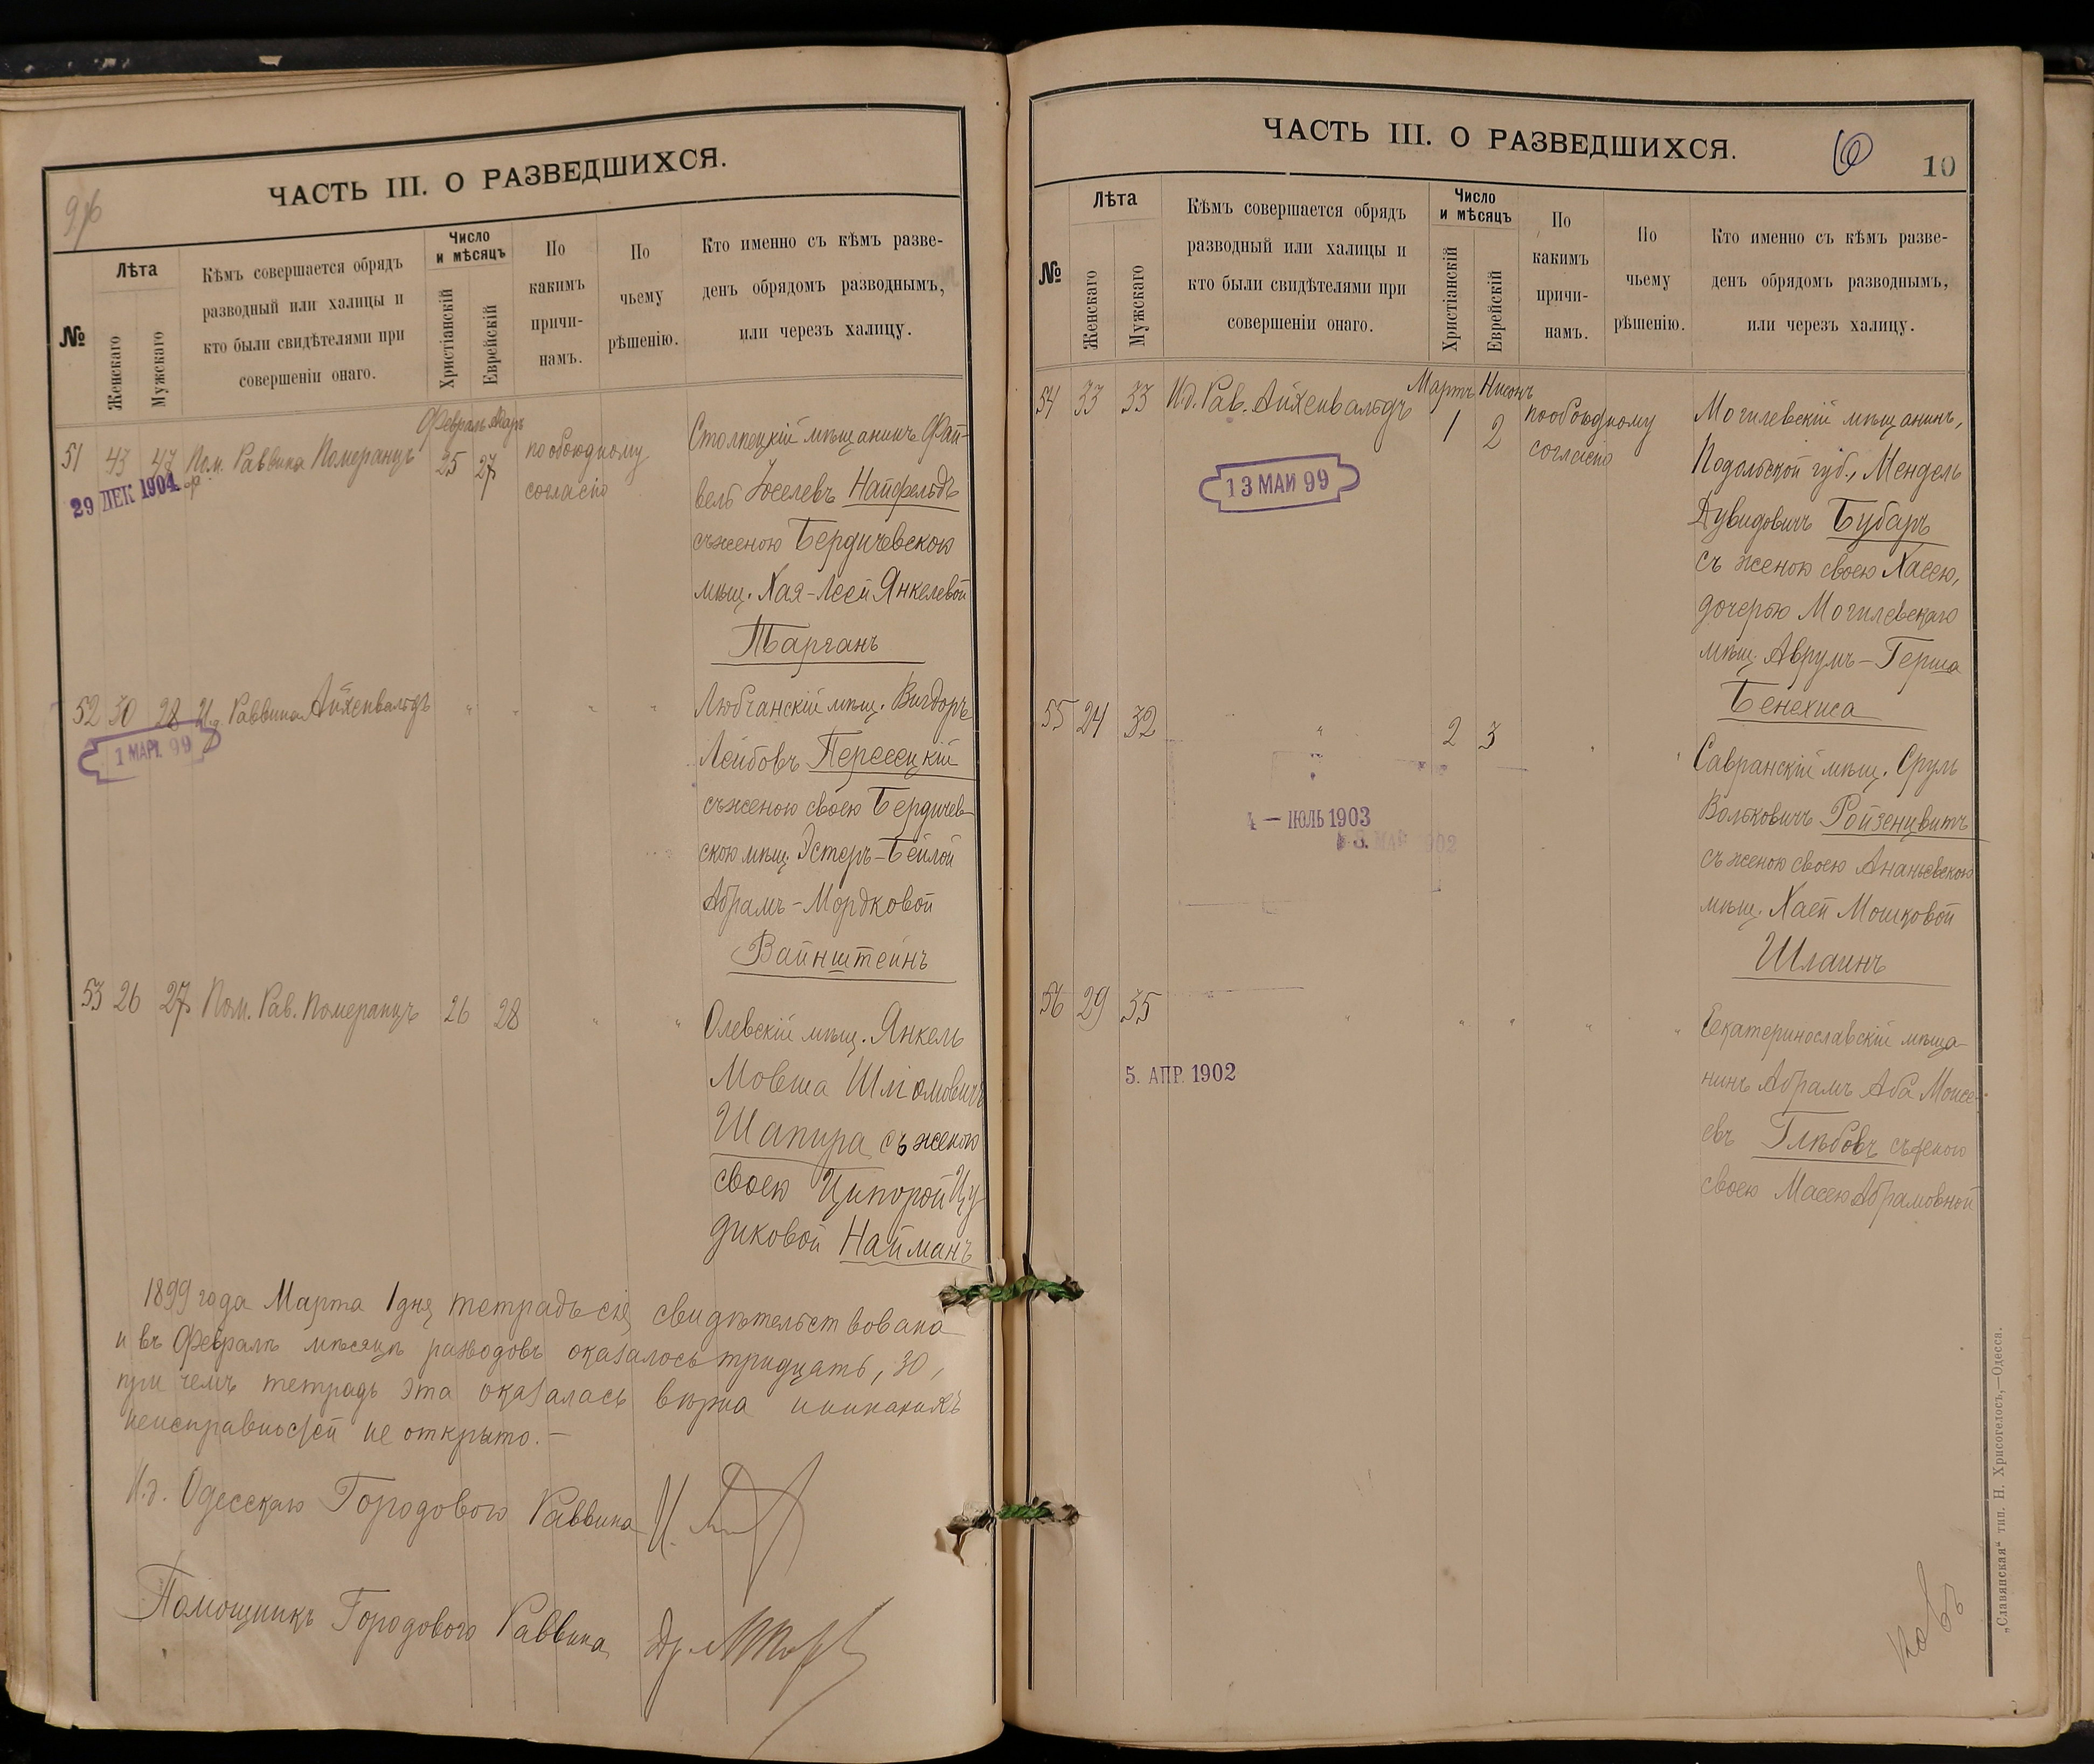 ЧАСТЬ III. О РАЗВЕДШИХСЯ.
№
Лѣта
Женскаго
Мужскаго
Кѣмъ совершается обрядъ
разводный или халицы и
кто были свидѣтелями при
совершеніи онаго.
Число
и мѣсяцъ
Христіанскій
Еврейскій
По
какимъ
причи-
намъ.
По
чьему
рѣшенію.
Кто именно съ кѣмъ разве-
денъ обрядомъ разводнымъ,
или черезъ халицу.
Февраль Адаръ
51 43 47 Пом. Раввина Померанцъ 25 27 по обоюдному
согласію
29 ДЕК 1904
Столпецкій мѣщанинъ Фай-
вель Іоселевъ Найфельдъ
съ женою Бердичевскою
мѣщ. Хая-Леей Янкелевой
Тарганъ
52 30 28 И.д. Раввина Айхенвальдъ " " " "
1 МАР. 99
Любчанскій мѣщ. Вигдоръ
Лейбовъ Пересецкій
съ женою своею Бердичев-
скою мѣщ. Эстеръ-Бейлой
Абрамъ-Мордковой
Вайнштейнъ
53 26 27 Пом. Рав. Померанцъ 26 28 " "
Олевскій мѣщ. Янкель
Мовша Шліомовичъ
Шапира съ женою
своею Ципорой Цу
диковой Найманъ
1899 года Марта 1 дня тетрадь сія свидѣтельствована
и въ Февралѣ мѣсяцѣ разводовъ оказалось тридцать, 30,
при чемъ тетрадь эта оказалась вѣрна и никакихъ
неисправностей не открыто. —
И.д. Одесскаго Городового Раввина
Помощникъ Городового Раввина
ЧАСТЬ III. О РАЗВЕДШИХСЯ.
10
№
Лѣта
Женскаго
Мужскаго
Кѣмъ совершается обрядъ
разводный или халицы и
кто были свидѣтелями при
совершеніи онаго.
Число
и мѣсяцъ
Христіанскій
Еврейскій
По
какимъ
причи-
намъ.
По
чьему
рѣшенію.
Кто именно съ кѣмъ разве-
денъ обрядомъ разводнымъ,
или черезъ халицу.
Мартъ Нисонъ
54 33 33 И.д. Рав. Айхенвальдъ 1 2 по обоюдному
согласію
13 МАИ 99
Могилевскій мѣщанинъ,
Подольской губ., Мендель
Дувидовичъ Бубаръ
съ женою своею Хасею,
дочерью Могилевскаго
мѣщ. Аврумъ-Герша
Бенехиса
55 24 32 " 2 3 " "
4 — ІЮЛЬ 1903
МАР 1902
Савранскій мѣщ. Сруль
Волковичъ Ройзенцвитъ
съ женою своею Ананьевскою
мѣщ. Хаей Мошковой
Шлаинъ
56 29 35 " " " " "
5. АПР. 1902
Екатеринославскій мѣща-
нинъ Абрамъ Аба Моисе-
евъ Глѣбовъ съ женою
своею Масею Абрамовной
„Славянская“ тип. Н. Хрисогелосъ,—Одесса.